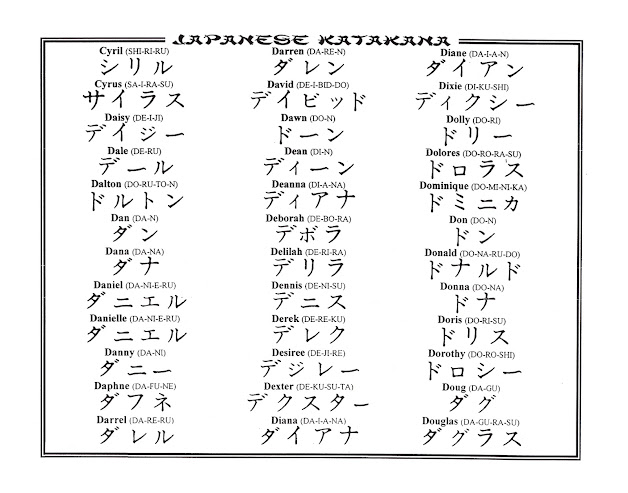 JAPANESE KATAKANA
Cyril (SHI-RI-RU)
シリル
Cyrus (SA-I-RA-SU)
サイラス
Daisy (DE-I-JI)
デイジー
Dale (DE-RU)
デール
Dalton (DO-RU-TO-N)
ドルトン
Dan (DA-N)
ダン
Dana (DA-NA)
ダナ
Daniel (DA-NI-E-RU)
ダニエル
Danielle (DA-NI-E-RU)
ダニエル
Danny (DA-NI)
ダニー
Daphne (DA-FU-NE)
ダフネ
Darrel (DA-RE-RU)
ダレル
Darren (DA-RE-N)
ダレン
David (DE-I-BID-DO)
デイビッド
Dawn (DO-N)
ドーン
Dean (DI-N)
ディーン
Deanna (DI-A-NA)
ディアナ
Deborah (DE-BO-RA)
デボラ
Delilah (DE-RI-RA)
デリラ
Dennis (DE-NI-SU)
デニス
Derek (DE-RE-KU)
デレク
Desiree (DE-JI-RE)
デジレー
Dexter (DE-KU-SU-TA)
デクスター
Diana (DA-I-A-NA)
ダイアナ
Diane (DA-I-A-N)
ダイアン
Dixie (DI-KU-SHI)
ディクシー
Dolly (DO-RI)
ドリー
Dolores (DO-RO-RA-SU)
ドロラス
Dominique (DO-MI-NI-KA)
ドミニカ
Don (DO-N)
ドン
Donald (DO-NA-RU-DO)
ドナルド
Donna (DO-NA)
ドナ
Doris (DO-RI-SU)
ドリス
Dorothy (DO-RO-SHI)
ドロシー
Doug (DA-GU)
ダグ
Douglas (DA-GU-RA-SU)
ダグラス